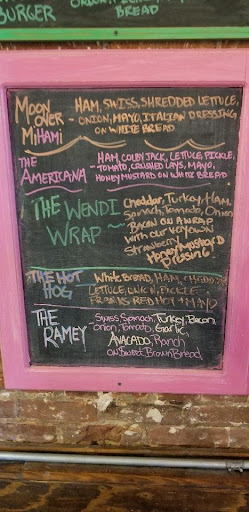 BURGER
BREAD
MOON OVER MiHAMi
HAM, SWISS, SHREDDED LETTUCE,
- ONION, MAYO, ITALIAN DRESSING
ON WHITE BREAD
THE AMERICANA
HAM, COLBY JACK, LETTUCE, PICKLE,
- TOMATO, CRUSHED LAYS, MAYO,
HONEYMUSTARD ON WHITE BREAD
THE WENDI WRAP ~
Cheddar, Turkey, HAM,
Spinach, Tomato, Onion
BACON ON A WRAP
with our very own
Strawberry
Honey Mustard
Dressing
THE HOT HOG
White BREAD, HAM, CHEDD
LETTUCE, ONION, PICKLE
FRANKS RED HOT + MAYO
THE RAMEY
Swiss, Spinach, Turkey, Bacon,
Onion, Tomato, Garlic
AVACADO, Ranch
on Sweet Brown Bread